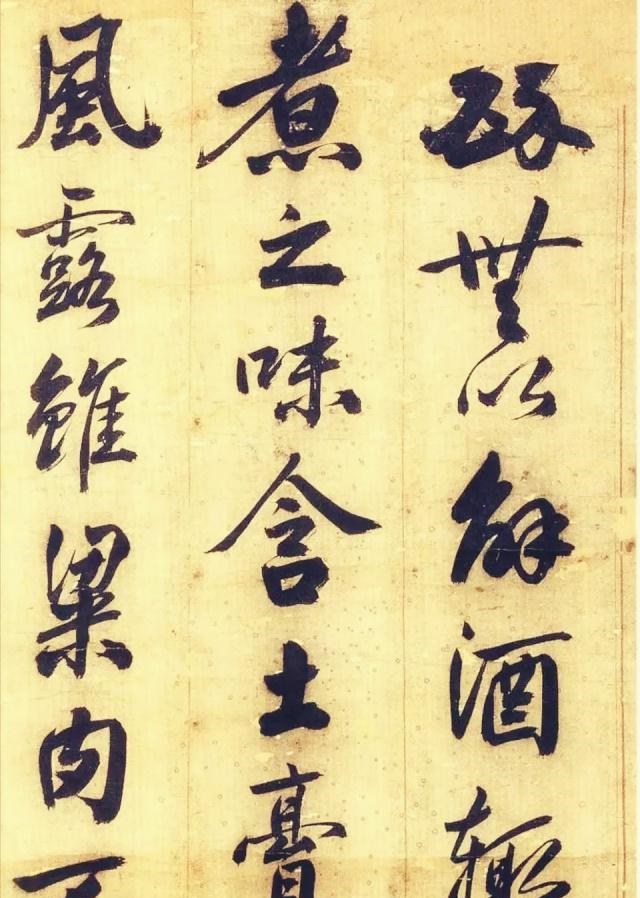 醉無以解酒輒
煮之味含土膏
風露雖粱肉不